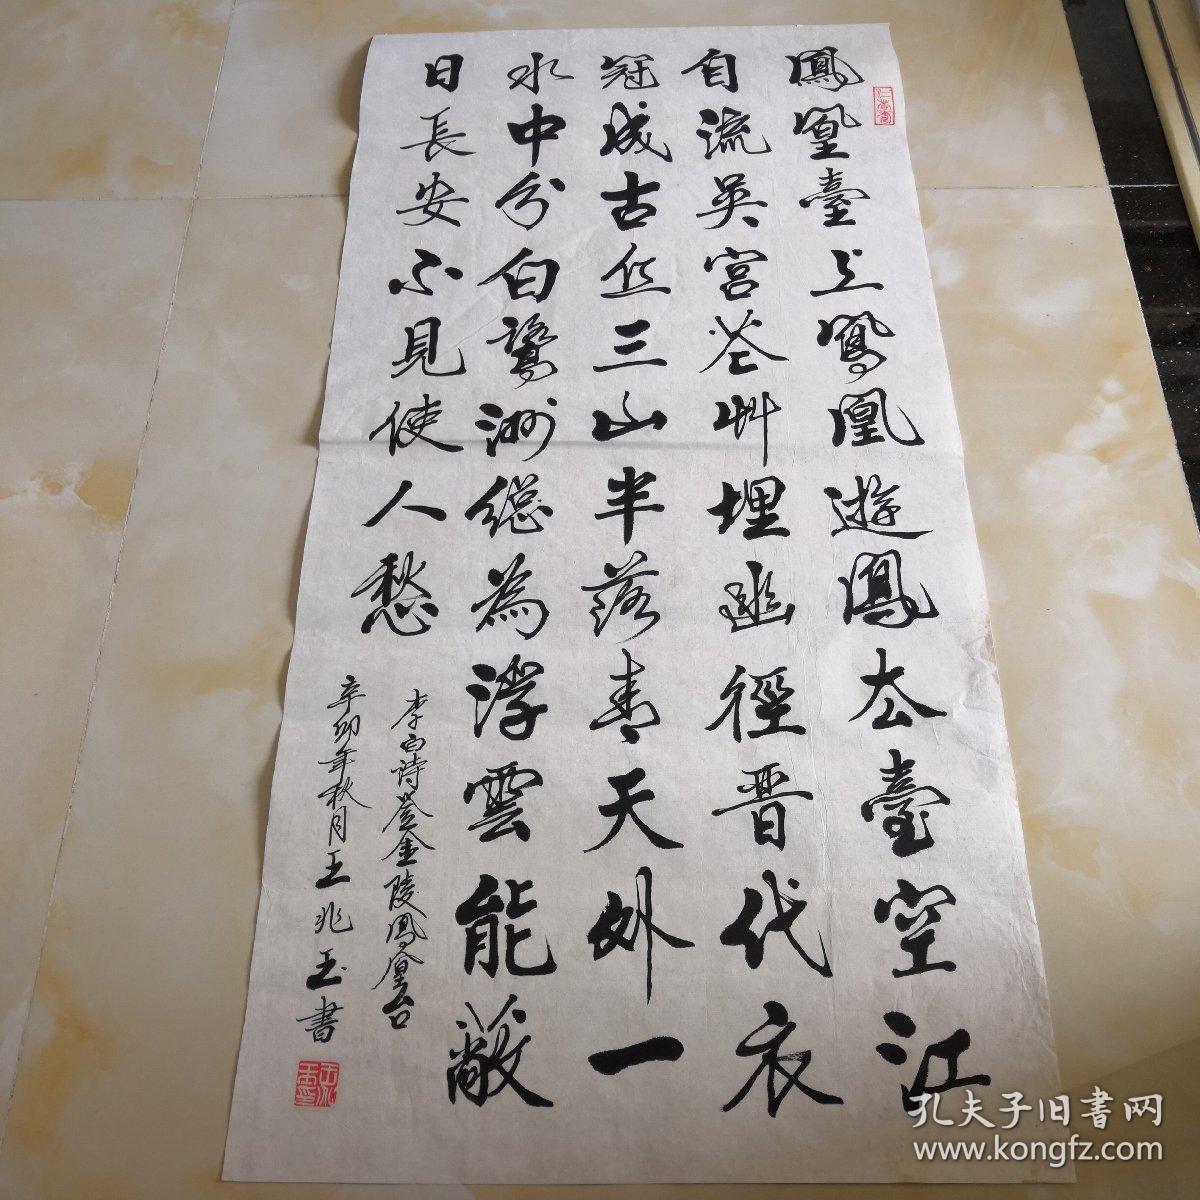 鳳凰臺上鳳凰遊鳳去臺空江
自流吳宮花艸埋幽徑晋代衣
冠成古丘三山半落青天外一
水中分白鷺洲總為浮雲能蔽
日長安不見使人愁
李白诗登金陵鳳凰台
辛卯年秋月王兆玉書
孔夫子旧書网
www.kongfz.com